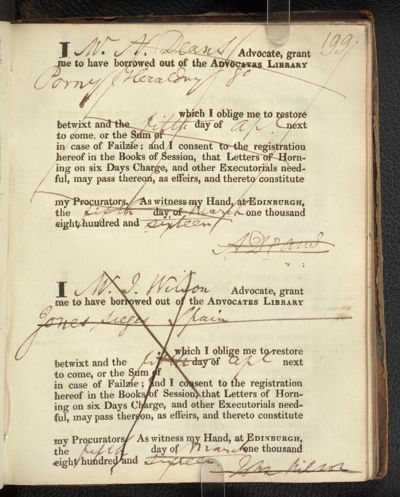 199.
I Mr. A. Deans Advocate, grant
me to have borrowed out of the ADVOCATES LIBRARY
Porny Heraldry 8o
which I oblige me to restore
betwixt and the fifth day of apl next
to come. or the Sum of
in case of Failzie; and I consent to the registration
hereof in the Books of Session, that Letters of Horn-
ing on six Days Charge, and other Executorials need-
ful, may pass thereon, as effeirs, and thereto constitute
my Procurators. As witness my Hand, at EDINBURGH,
the fifth day of March one thousand
eight hundred and sixteen
A Deans
I Mr. J. Wilson Advocate, grant
me to have borrowed out of the ADVOCATES LIBRARY
Jones, Sieges Spain
which I oblige me to restore
betwixt and the fifth day of apl next
to come, or the Sum of
in case of Failzie; and I consent to the registration
hereof in the Books of Session, that Letters of Horn-
ing on six Days Charge, and other Executorials need-
ful, may pass thereon, as effeirs, and thereto constitute
my Procurators. As witness my Hand, at EDINBURGH,
the fifth day of March one thousand
eight hundred and sixteen
John Wilson